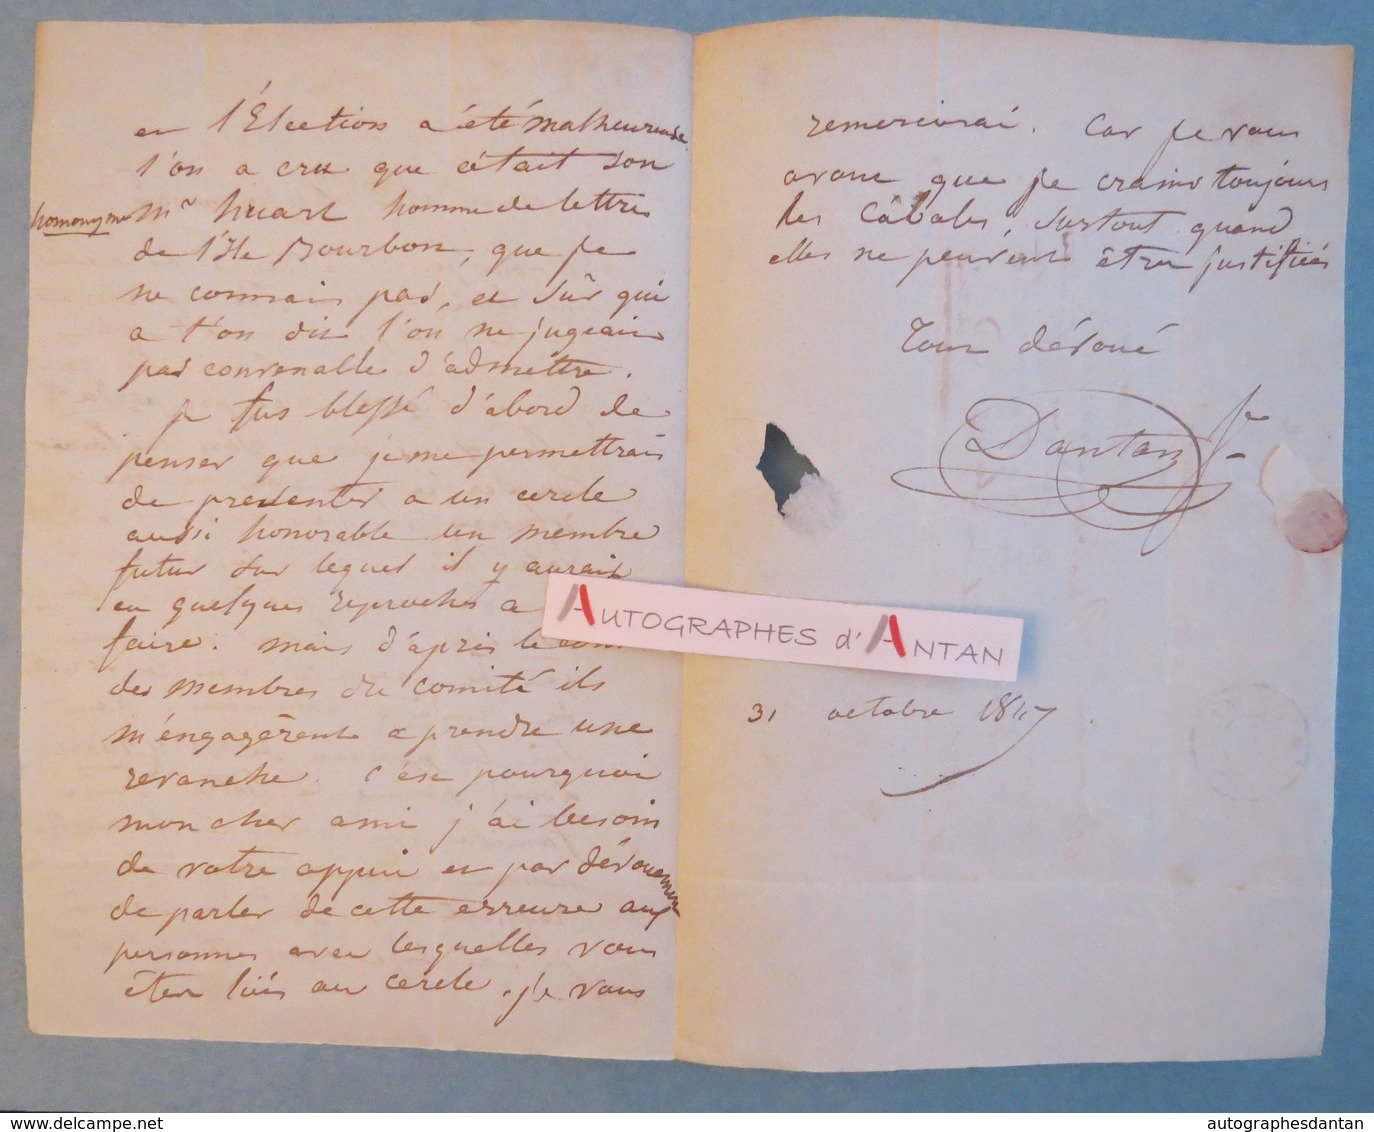 et l'Election a été malheureuse
l'on a cru que c'était son
homonyme Mr huart homme de lettres
de l'Ile Bourbon, que je
ne connais pas, et sûr qui
a t'on dit l'on ne jugeait
pas convenable d'admettre.
je fus blessé d'abord de
penser que je me permettrais
de presenter a un cercle
aussi honorable un membre
futur sur lequel il y aurait
eu quelques reproches a
faire. mais d'après le
des membres du comité ils
m'éngagèrent a prendre une
revanche. c'est pourquoi
mon cher ami j'ai besoin
de votre appui et par dévouement
de parler de cette erreure aux
personnes avec lesquelles vous
êtes liés au cercle. je vous
remercierai. Car je vous
avoue que je crains toujours
les Câbales, surtout quand
elles ne peuvent être justifiées
Tout dévoué
Dantan Je
31 octobre 1847
AUTOGRAPHES d'ANTAN
autographesdantan